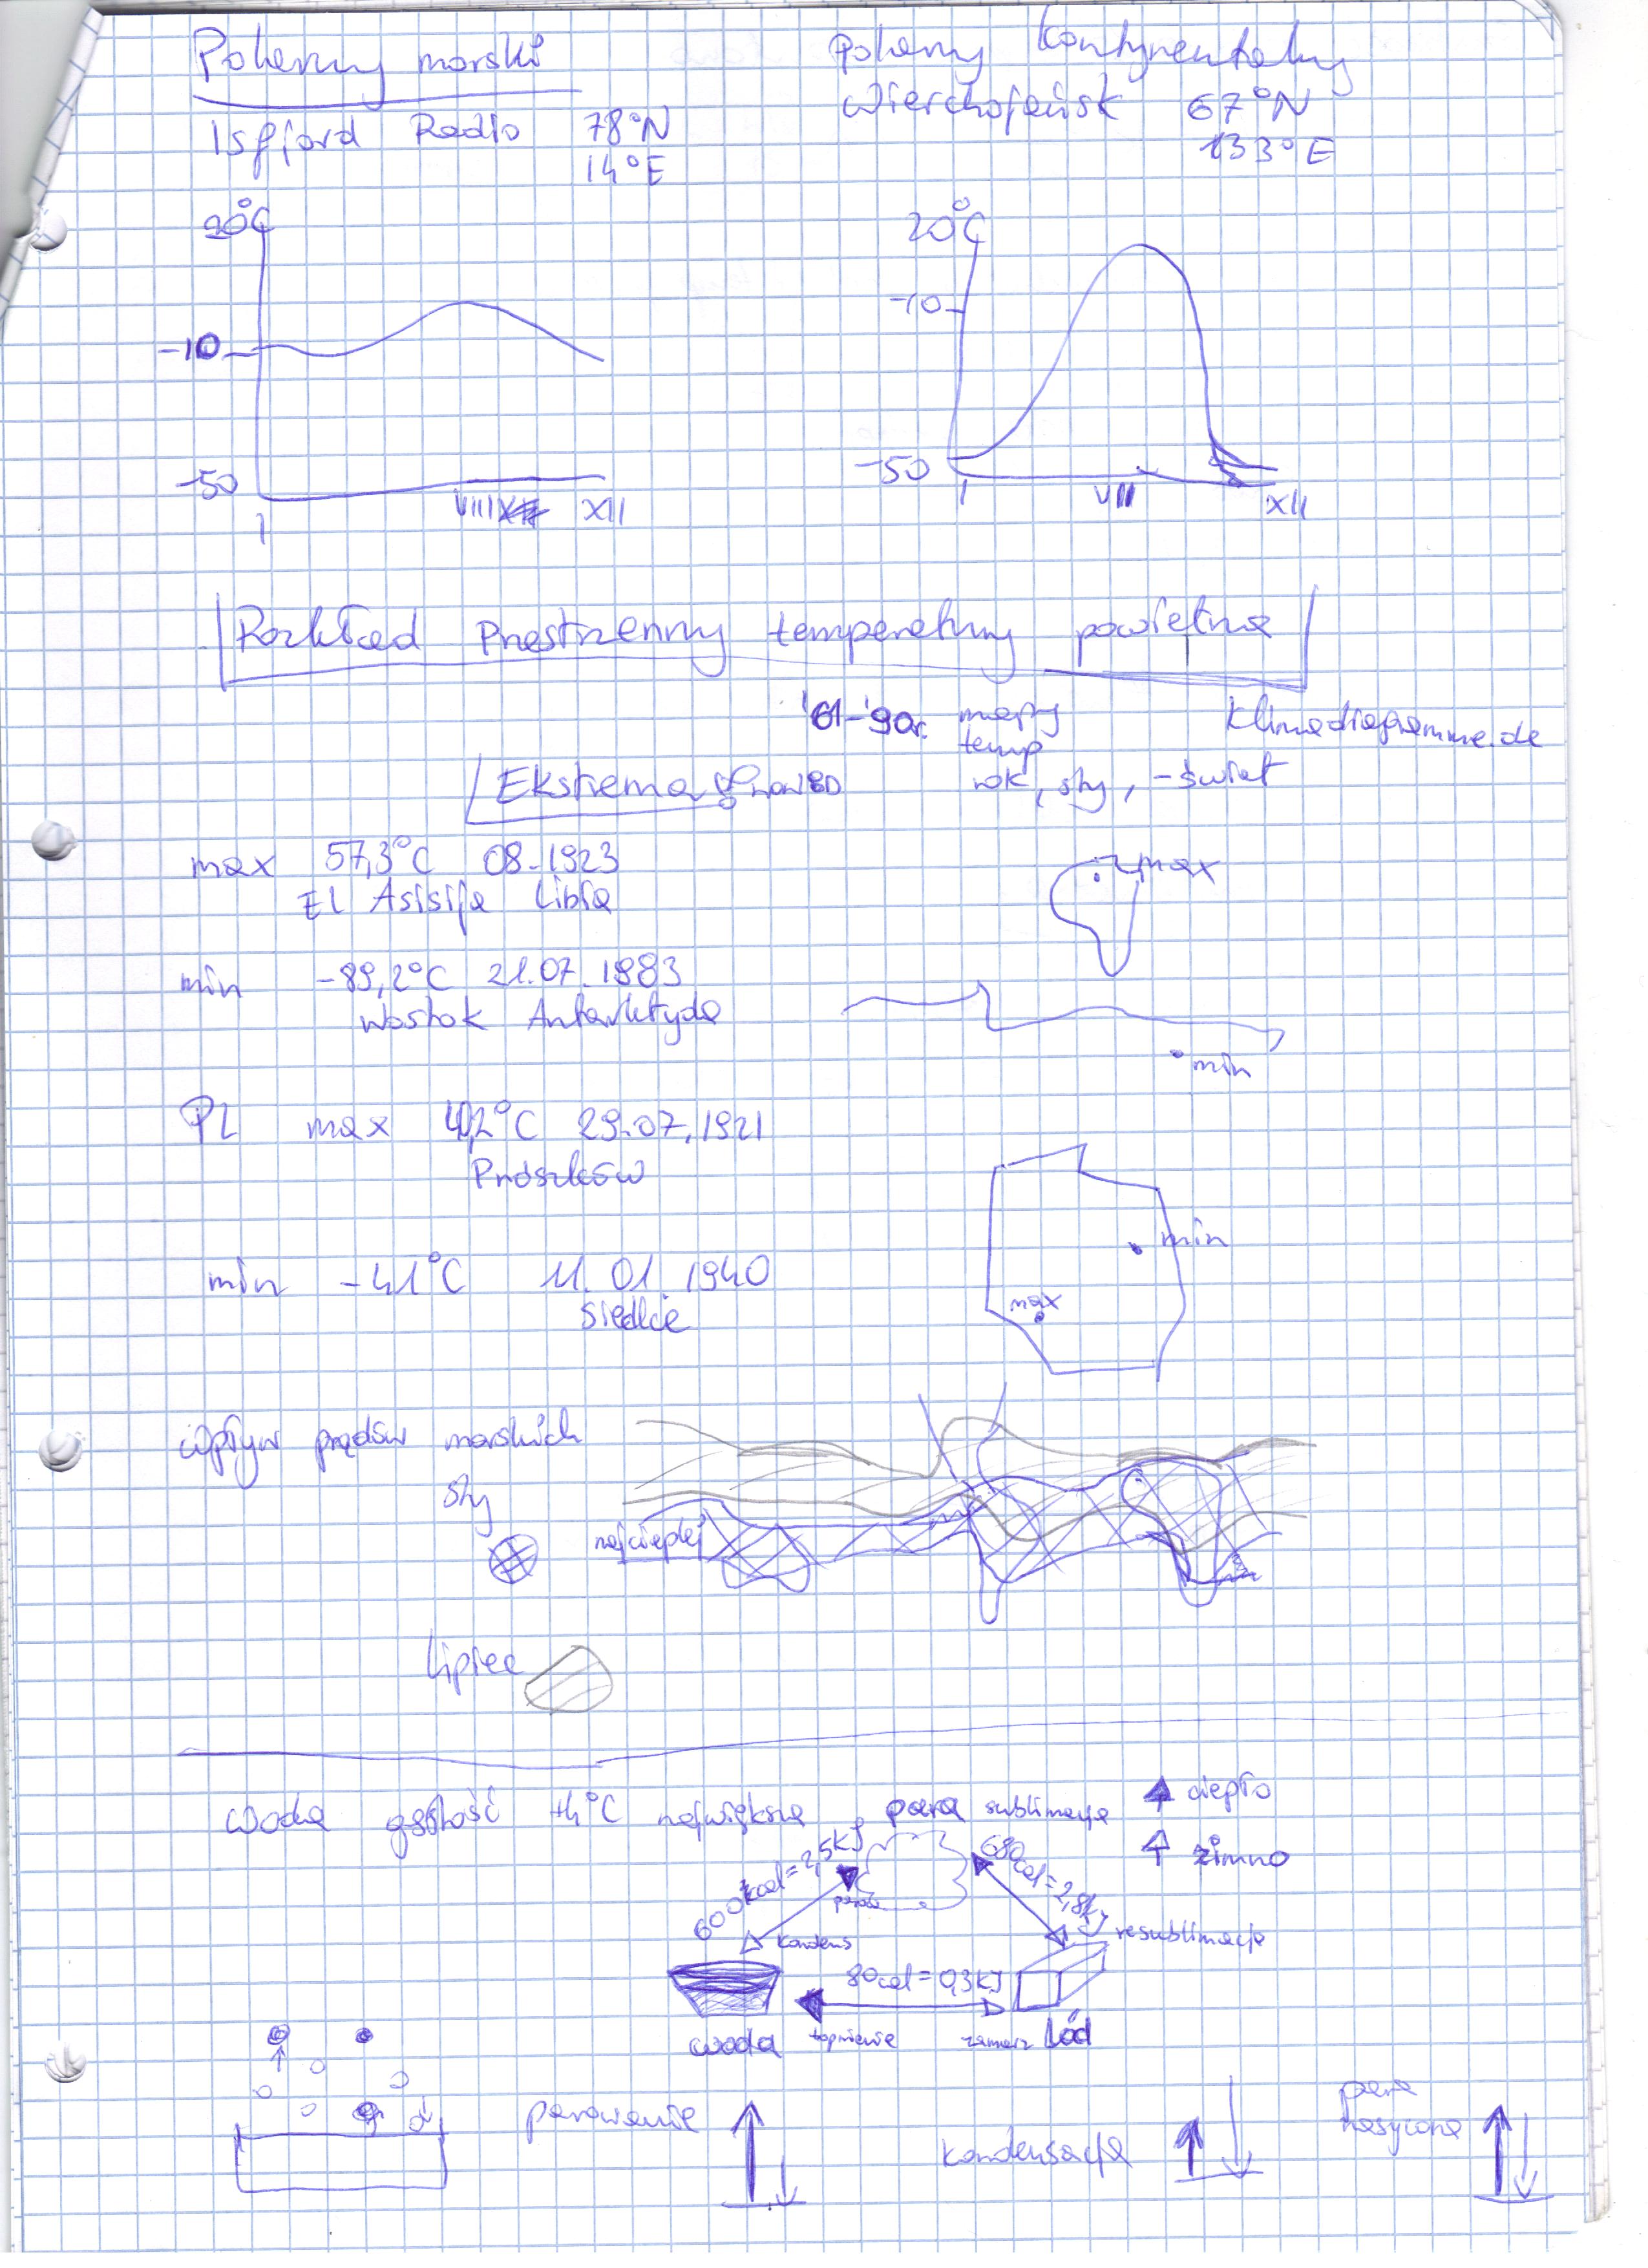 Polarny morski
Isfjord Radio 78°N
14°E
20°C
-10
-50
I VIII XII
Polarny kontynentalny
Wierchojańsk 67°N
133°E
20°C
-10
-50
I VII XII
Rozkład Przestrzenny temperatury powietrza
'61-'90r. mapy
temp
rok, sty, - świat
klimadiagramme.de
Ekstrema
max 57,3°C 08.1923
El Asisija Libia
max
min -89,2°C 21.07.1983
Wostok Antarktyda
min
PL max 40,2°C 29.07.1921
Prószków
min -41°C 11.01.1940
Siedlce
min
max
wpływ prądów morskich
sty
najcieplej
Lipiec
woda gęstość +4°C największa
para sublimacja
ciepło
zimno
600kcal = 2,5kJ
680cal = 2,8kJ
parow
kondens
resublimacja
80cal = 0,3kJ
woda topnienie zamarz lód
parowanie
kondensacja
para
nasycona